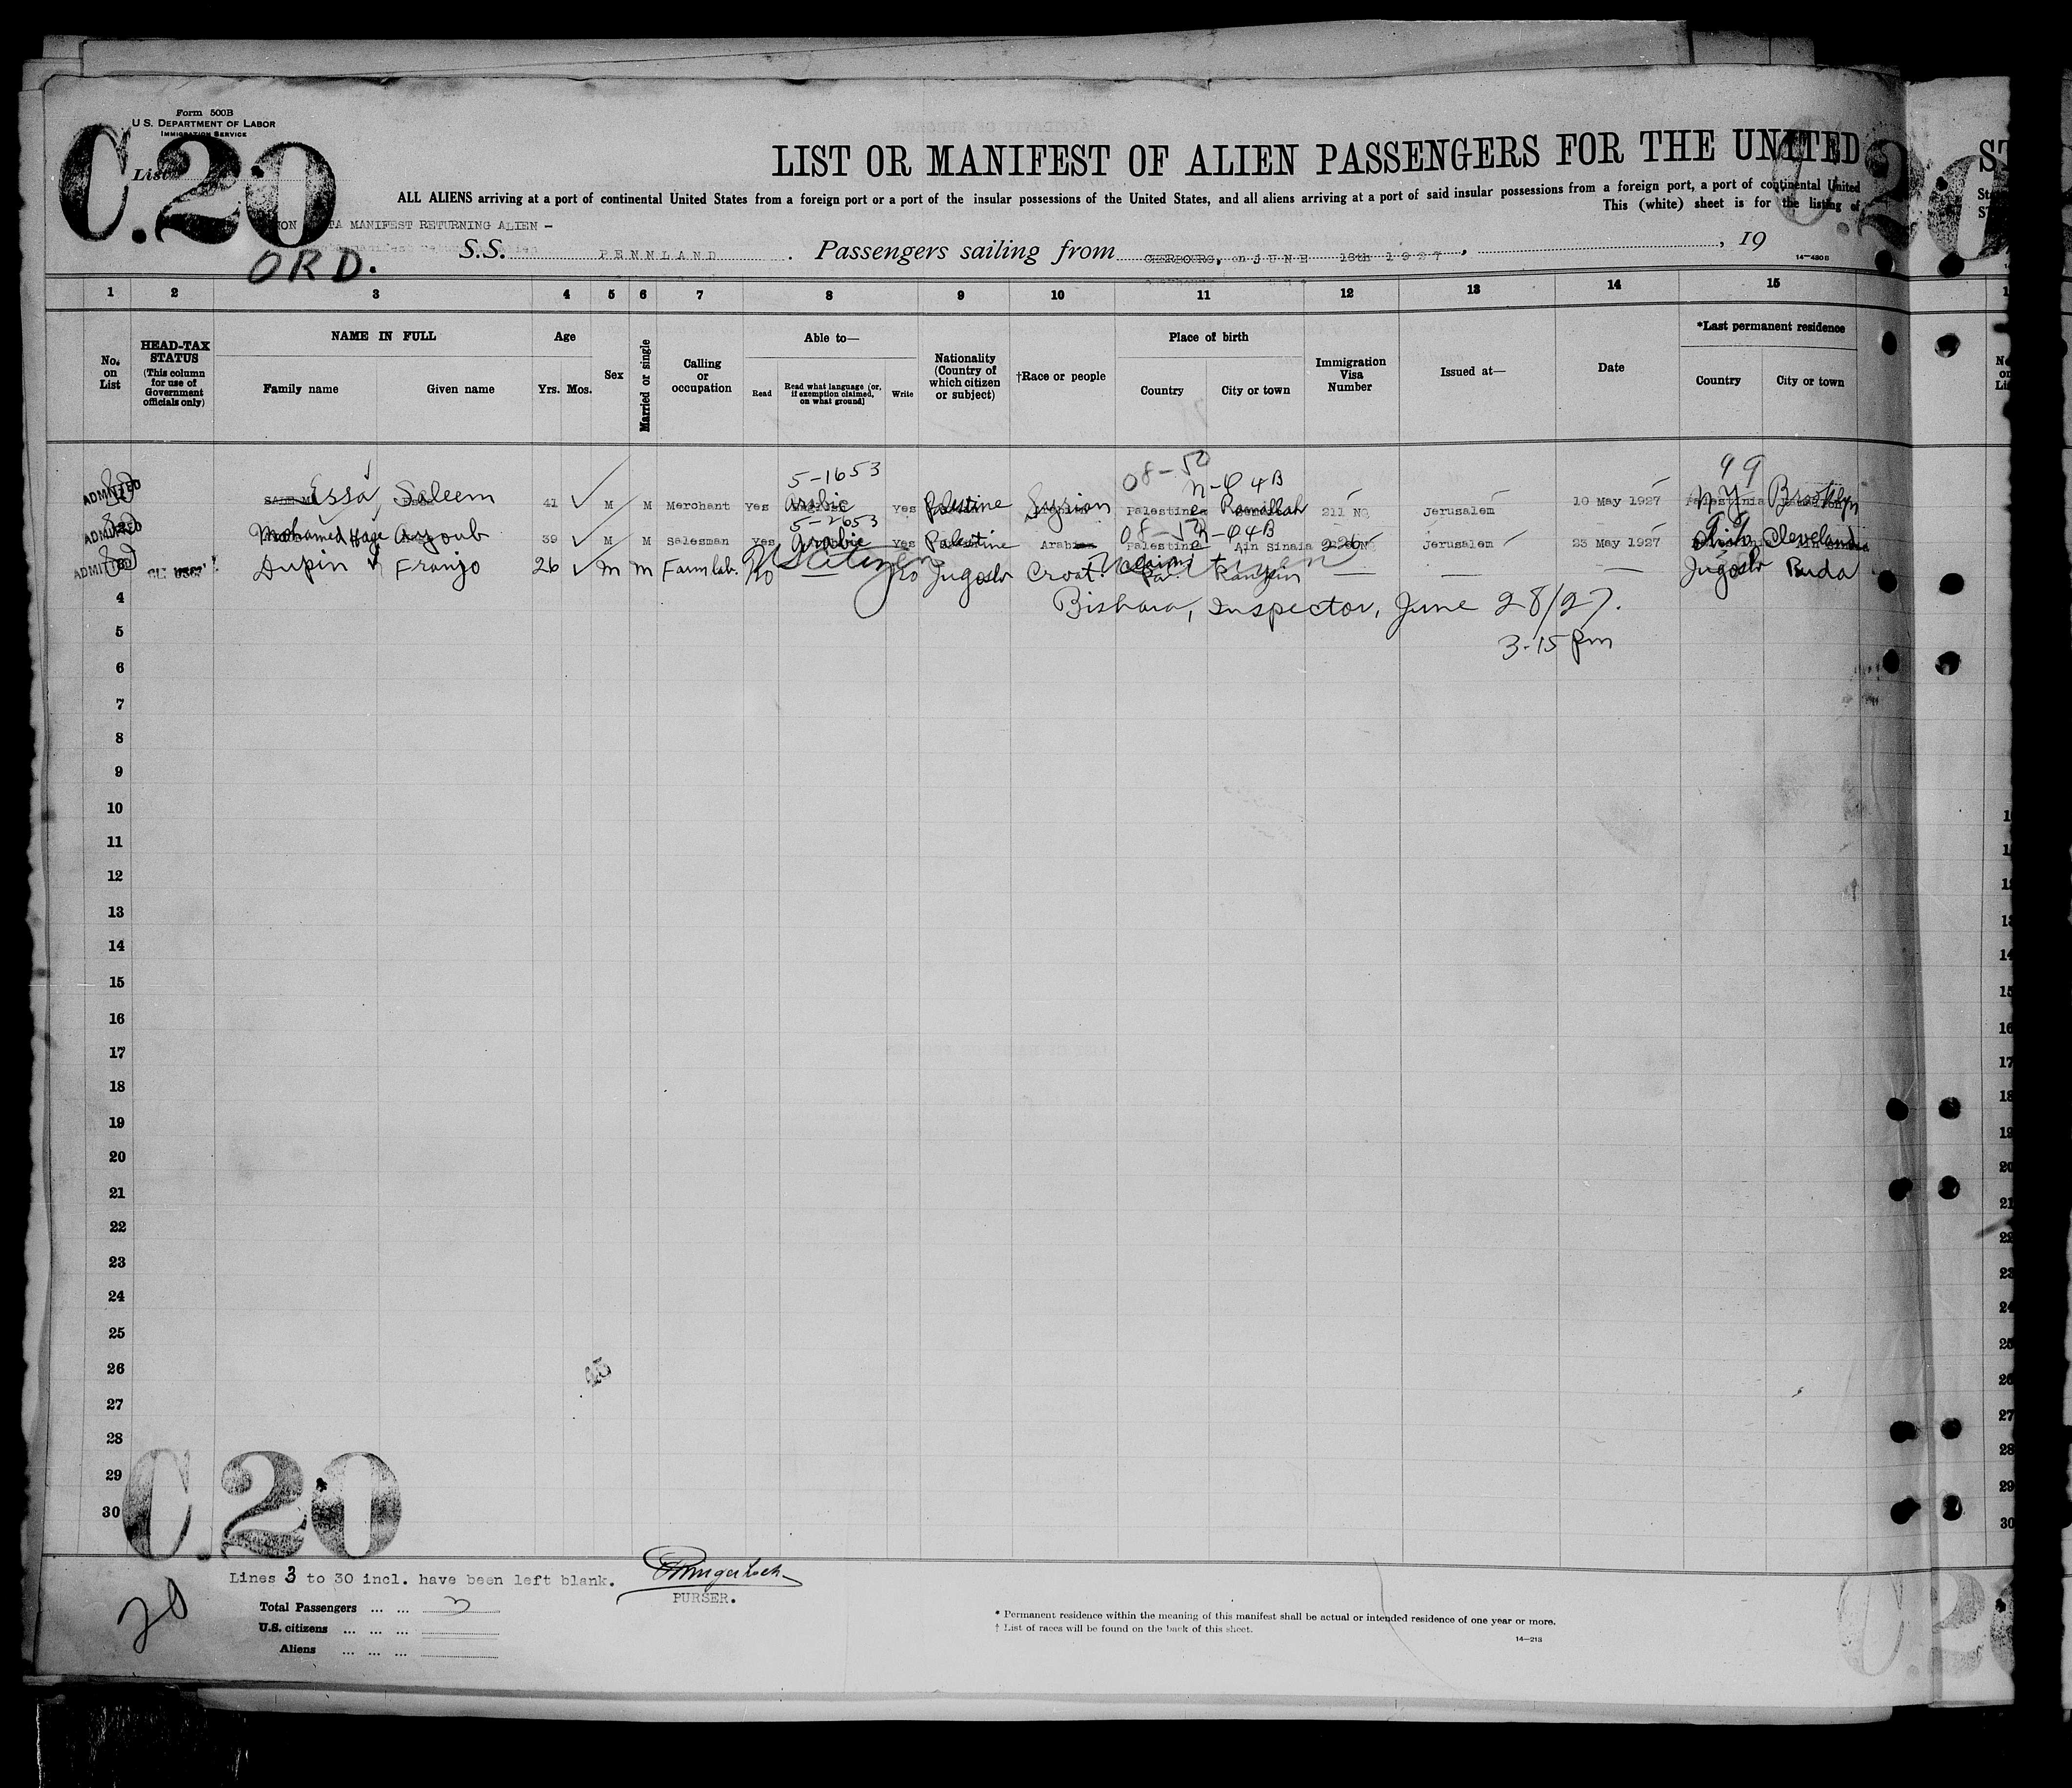 Form 500B
U.S. DEPARTMENT OF LABOR
IMMIGRATION SERVICE
List
C.20
LIST OR MANIFEST OF ALIEN PASSENGERS FOR THE UNITED
ST
ALL ALIENS arriving at a port of continental United States from a foreign port or a port of the insular possessions of the United States, and all aliens arriving at a port of said insular possessions from a foreign port, a port of continental United
This (white) sheet is for the listing of
MANIFEST RETURNING ALIEN -
ORD.
S.S. PENNLAND. Passengers sailing from CHERBOURG, on JUNE 18th 1927, , 19
14-430B
1 2 3 4 5 6 7 8 9 10 11 12 13 14 15
No. on List
HEAD-TAX STATUS (This column for use of Government officials only)
NAME IN FULL
Family name Given name
Age
Yrs. Mos.
Sex
Married or single
Calling or occupation
Able to—
Read Read what language (or, if exemption claimed, on what ground) Write
Nationality (Country of which citizen or subject)
†Race or people
Place of birth
Country City or town
Immigration Visa Number
Issued at—
Date
*Last permanent residence
Country City or town
5-1653 08-50 n-64B 99
ADMITTED Essa Saleem 41 M M Merchant yes Arabic yes Palestine Syrian Palestine Ramallah 211 NQ Jerusalem 10 May 1927 N.Y. Brooklyn
5-2653 08-50 n-64B 99
ADMITTED Mohamed Hage Ayoub 39 M M Salesman yes Arabic yes Palestine Arab Palestine Ain Sinaia 226 NQ Jerusalem 23 May 1927 Ohio Cleveland
ADMITTED Dupin Franjo 26 M M Farm lab. No US citizen No Jugoslv Croat. Pa. Rankin — — — Jugoslv Buda
4 Bishara, Inspector, June 28/27.
5 3-15 pm
6
7
8
9
10
11
12
13
14
15
16
17
18
19
20
21
22
23
24
25
26
27
28
29
30
C.20
20
Lines 3 to 30 incl. have been left blank.
PURSER.
Total Passengers ... ... 3
U.S. citizens ... ... ...
Aliens ... ... ...
* Permanent residence within the meaning of this manifest shall be actual or intended residence of one year or more.
† List of races will be found on the back of this sheet.
14-213